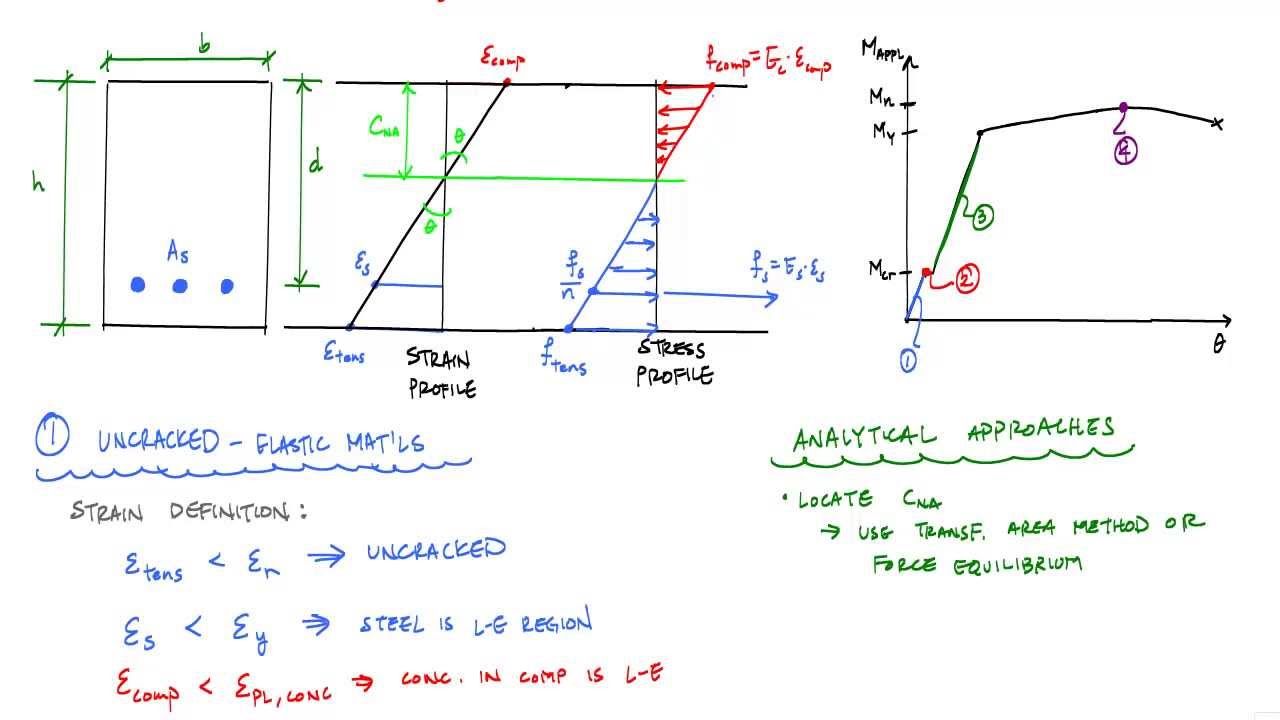 b
h
d
As
εcomp
CNA
θ
θ
εs
εtens
STRAIN
PROFILE
fcomp = Ec · εcomp
fs
n
fs = Es · εs
ftens
STRESS
PROFILE
MAPPL
Mn
My
Mcr
θ
①
②
③
④
① UNCRACKED – ELASTIC MAT'LS
STRAIN DEFINITION:
εtens < εr ⇒ UNCRACKED
εs < εy ⇒ STEEL IS L-E REGION
εcomp < εPL,CONC ⇒ CONC. IN COMP IS L-E
ANALYTICAL APPROACHES
• LOCATE CNA
→ USE TRANSF. AREA METHOD OR
FORCE EQUILIBRIUM